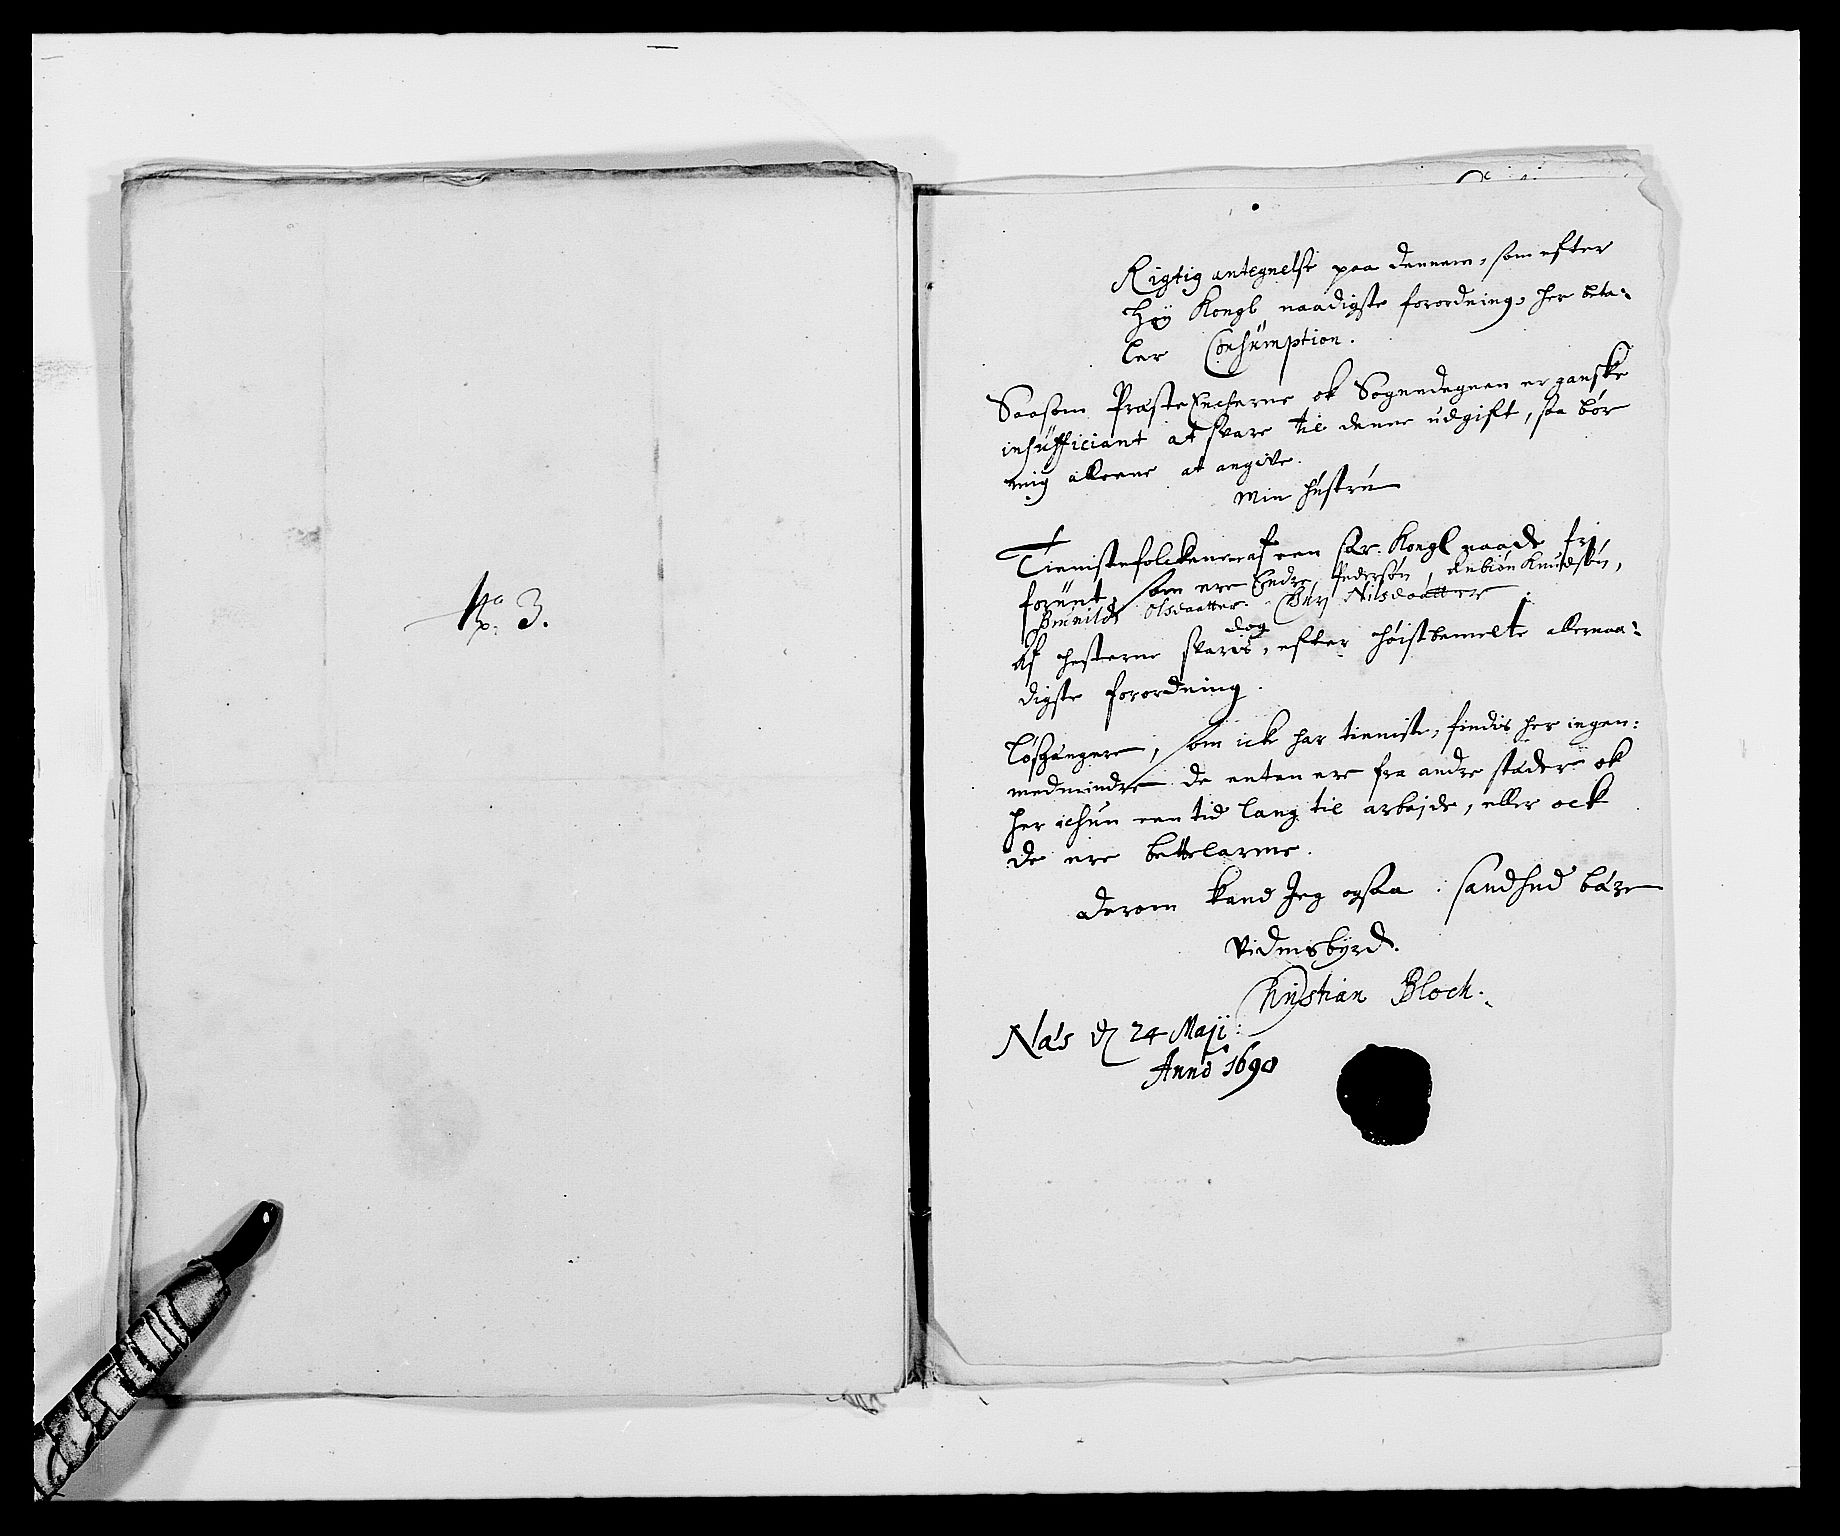 No. 3.
Rigtig antegnelse paa dennem, som efter
Høy Kongl naadigste forordning, her beta-
ler Consumption.
Saasom Præste Enckerne ok Sognedegnen er ganske
insufficiant at svare til denne udgift, saa bør
mig alleene at angive.
Min hustru
Tienistefolckene af een sær: Kongl naade fri,
forunt, som ere Endre Pedersøn, Knudsøn,
Olsdaatter. Nilsdaatter.
Af hesterne svaris dog, efter høistbemelte allernaa-
digste forordning.
Løsgængere, som ick har tieniste, findis her ingen:
medmindre de enten ere fra andre stæder ok
her ichun een tid lang til arbejde, eller ock
de ere bettelarme.
Derom kand Jeg ogsaa i sandhed bære
vidnisbyrd.
Christian Bloch.
Næs d 24 Maji:
Anno 1690